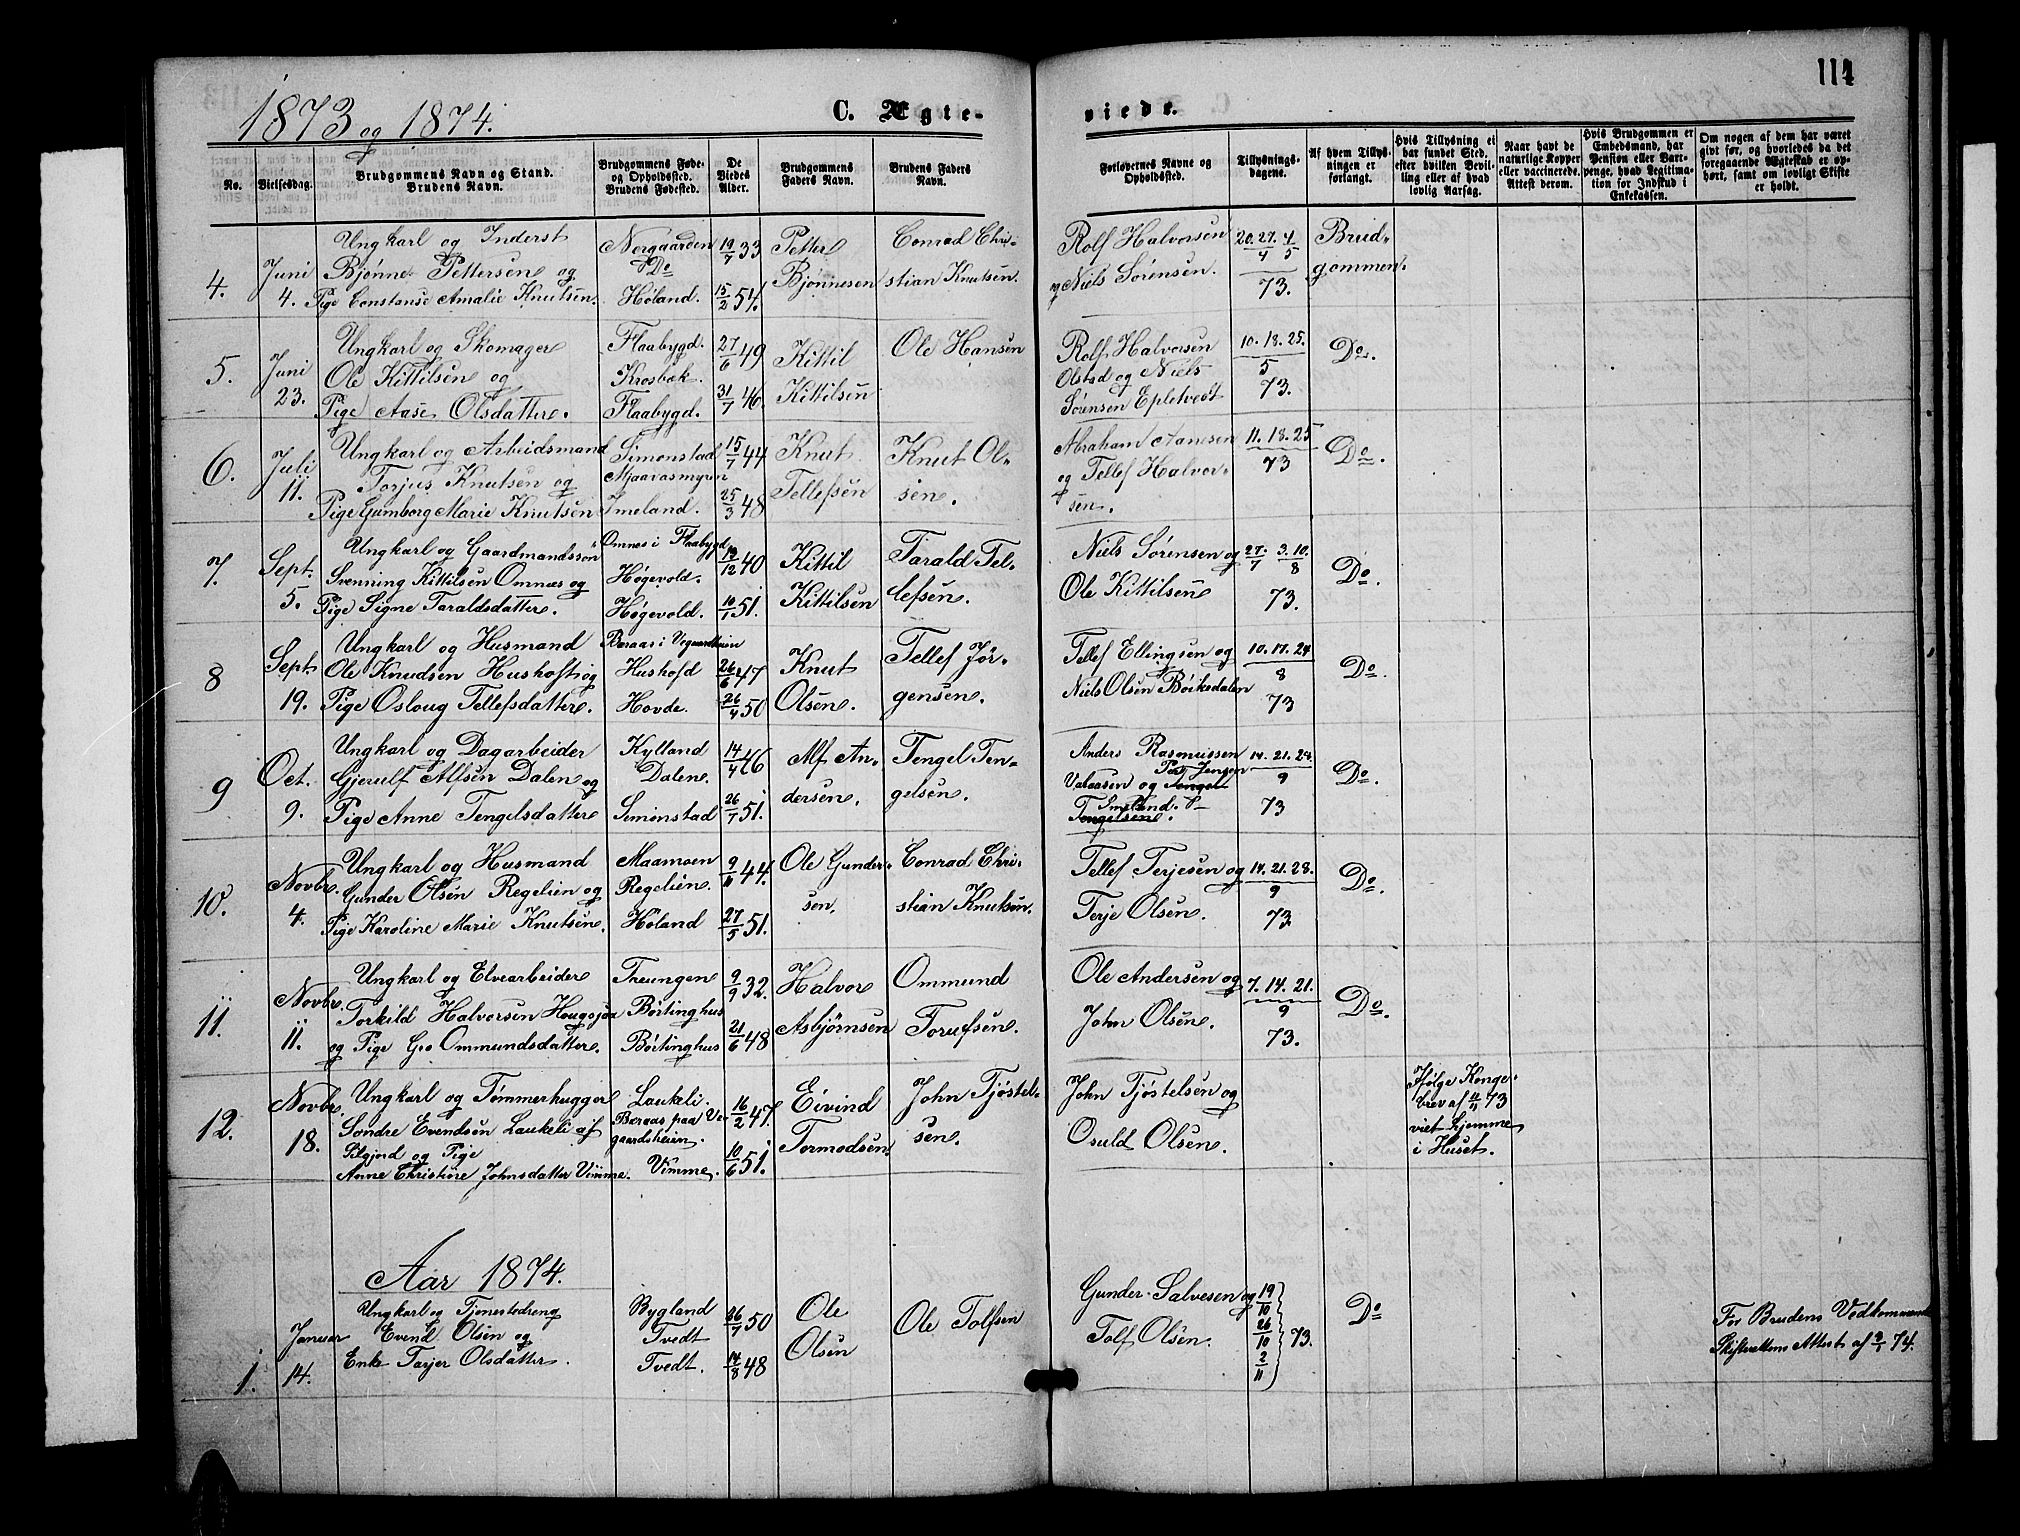 114
1873 og 1874.
C. Ægte-
viede.
No.
Vielsesdag.
Brudgommens Navn og Stand.
Brudens Navn.
Brudgommens Føde-
og Opholdssted.
Brudens Fødested.
De
Viedes
Alder.
Brudgommens
Faders Navn.
Brudens Faders
Navn.
Forlovernes Navne og
Opholdssted.
Tillysnings-
dagene.
Af hvem Tillys-
ningen er
forlangt.
Hvis Tillysning ei
har fundet Sted,
efter hvilken Bevil-
ling eller af hvad
lovlig Aarsag.
Naar havt de
naturlige Kopper
eller vaccinerede.
Attest derom.
Hvis Brudgommen er
Embedsmand, har
Pension eller Vart-
penge, hvad Legitima-
tion for Indskud i
Enkekassen.
Om nogen af dem har været
givt før, og hvorledes da det
foregaaende Ægteskab er op-
hørt, samt om lovligt Skifte
er holdt.
4.
Juni
4.
Ungkarl og Inderst
Bjønne Pettersen og
Pige Constanse Amalie Knutsen.
Nergaarden
Do
Høland.
19/7 33
15/2 54.
Petter
Bjønnesen
Conrad Chri-
stian Knutsen.
Rolf Halvorsen
og Niels Sørensen.
20. 27./4 4/5
73.
Brud-
gommen.
5.
Juni
23.
Ungkarl og Skomager
Ole Kittilsen og
Pige Aase Olsdatter.
Flaabygd.
Krosbak.
Flaabygd.
27/6 49
31/7 46.
Kittil
Kittilsen
Ole Hansen
Rolf Halvorsen
Olstad og Niels
Sørensen Epletvedt
10. 18. 25.
5
73.
Do.
6.
Juli
11.
Ungkarl og Arbeidsmand
Torjus Knutsen og
Pige Gumborg Marie Knutsen
Simonstad
Mjaavasmyren
Imeland.
15/7 44
25/3 48
Knut
Tellefsen
Knut Ol-
sen.
Abraham Aanesen
og Tellef Halvor-
sen.
11. 18. 25
73
Do.
7.
Sept.
5.
Ungkarl og Gaardmandssøn
Svenning Kittilsen Omnes og
Pige Signe Taraldsdatter.
Omnes i Flaabygd
Høgevold.
Høgevold.
19/12 40
10/1 51.
Kittil
Kittilsen
Tarald Tel-
lefsen.
Niels Sørensen og
Ole Kittilsen
27./7 3. 10./8
73.
Do.
8
Sept
19.
Ungkarl og Husmand
Ole Knudsen Hushoft og
Pige Osloug Tellefsdatter.
Beraas i Vegaardsheien
Hushofd
Hovde.
26/6 47
26/4 50
Knut
Olsen.
Tellef Jør-
gensen.
Tellef Ellingsen og
Niels Olsen Böikedalen
10. 17. 24
8
73
Do.
9
Oct.
9.
Ungkarl og Dagarbeider
Gjerulf Alfsen Dalen og
Pige Anne Tengelsdatter
Kylland
Dalen.
Simonstad
14/4 46
26/7 51.
Alf An-
dersen.
Tengel Ten-
gelsen.
Anders Rasmussen
Per Jensen
og Tengel
Smeland.
Tengelsen.
14. 21. 28.
9
73
Do.
10.
Novbr.
4.
Ungkarl og Husmand
Gunder Olsen Regelien og
Pige Karoline Marie Knutsen.
Maamoen
Regelien.
Høland
9/11 44.
27/5 51.
Ole Gunder-
sen.
Conrad Chri-
stian Knutsen.
Tellef Terjesen og
Terje Olsen.
14. 21. 28.
9
73
Do.
11.
Novbr.
11.
Ungkarl og Elvearbeider
Torkild Halvorsen Hougsjaa
og Pige Gro Ommundsdatter.
Treungen
Börtinghus
Börtinghus
9/9 32.
21/6 48
Halvor
Asbjørnsen
Ommund
Torufsen.
Ole Andersen og
John Olsen.
7. 14. 21.
9
73.
Do.
12.
Novbr.
18.
Ungkarl og Tømmerhugger
Sondre Evendsen Laukeli af
Pilgjord og Pige
Anne Christine Johnsdatter Vimme.
Laukeli.
Beraas paa Ve-
gaardsheien.
Vimme.
16/2 47.
10/6 51.
Eivind
Tormodsen.
John Tjøstel-
sen.
John Tjøstelsen og
Osuld Olsen.
Ifølge Konge-
brev af 11/11 73
viet hjemme
i Huset.
Aar 1874.
1.
Januar
14.
Ungkarl og Tjenestedreng
Evend Olsen og
Enke Tarjer Olsdatter.
Bygland
Tvedt
Tvedt.
26/7 50
14/8 48
Ole
Olsen
Ole Tolfsen
Gunder Salvesen og
Tolf Olsen.
19/10
26/10
2/11
73.
Do
For Brudens Vedkommende
Skifterettens Attest af 2/1 74.